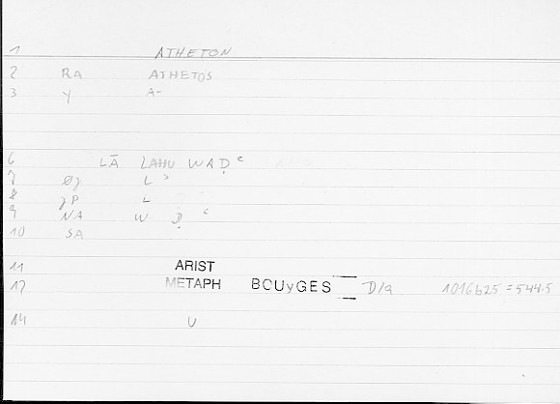 1 ATHETON
2 RA ATHETOS
3 y A-
6 LĀ LAHU WAḌʿ
7 L ʾ
8 gP L
9 NA W Ḍ ʿ
10 SA
11 ARIST
12 METAPH BOUyGES D/a 1016b25 = 544.5
14 U